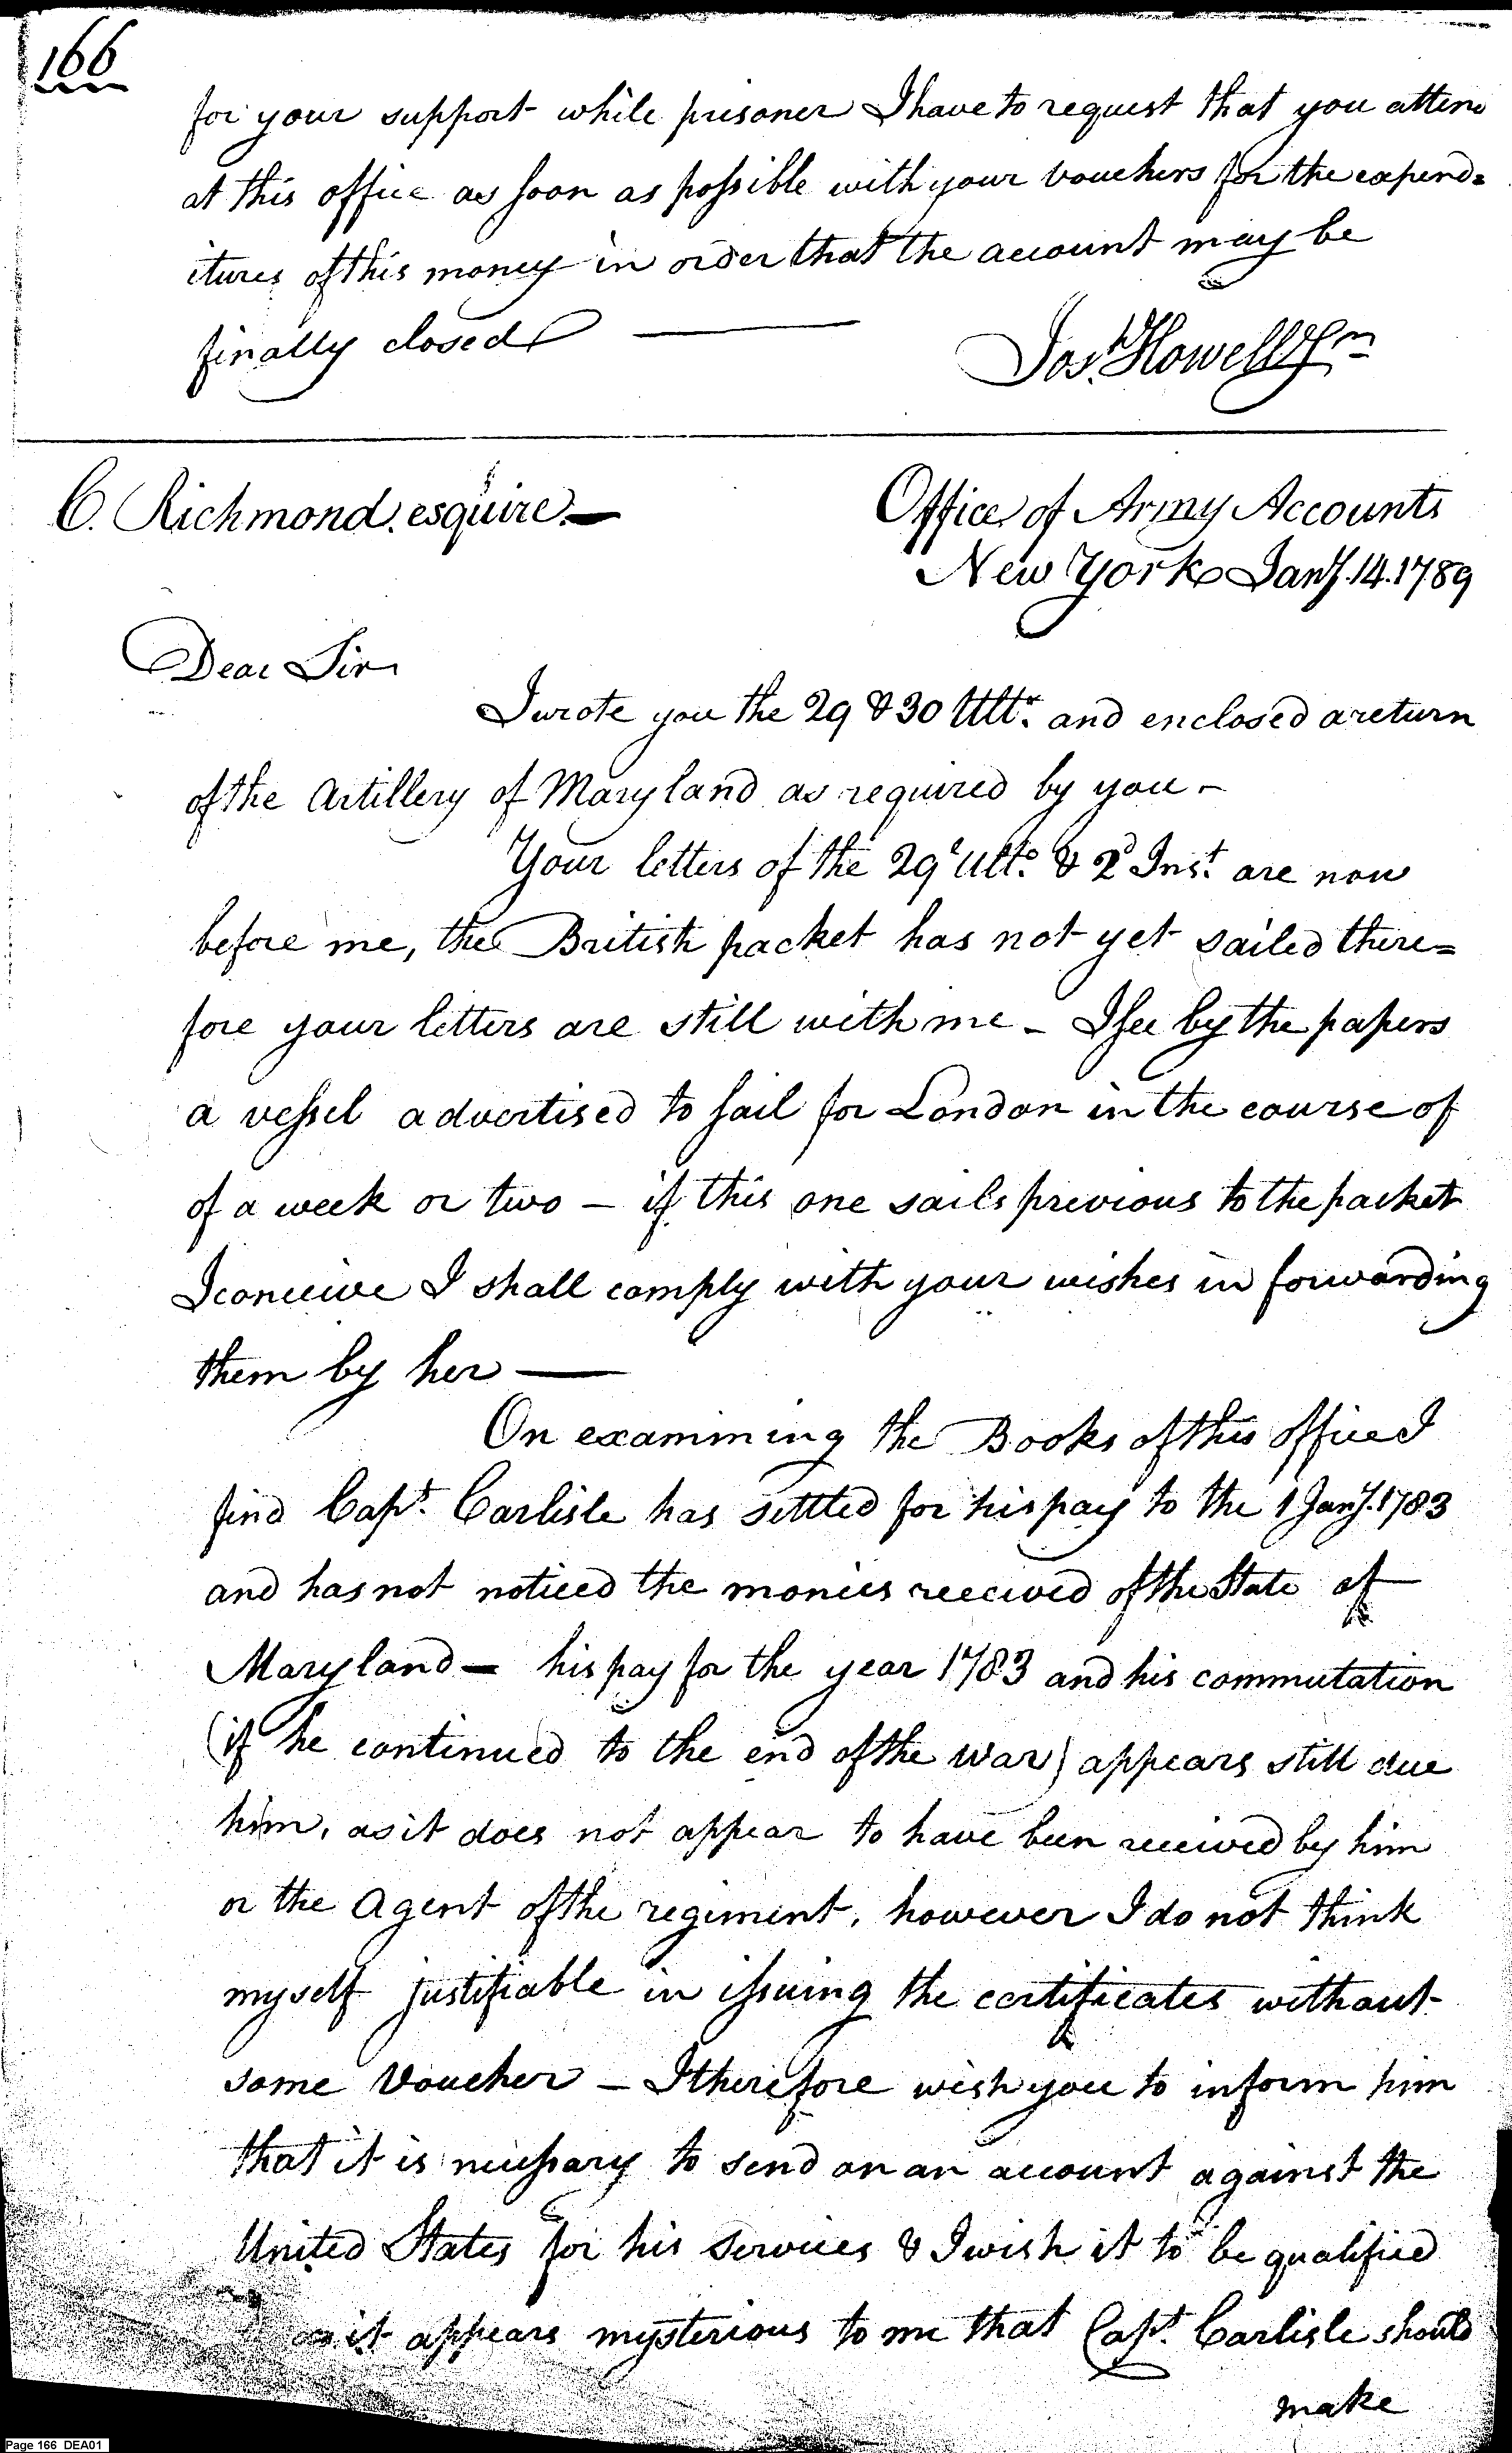 166
for your support while prisoner I have to request that you atten
at this office as soon as possible with your vouchers for the expend=
itures of this money in order that the account may be
finally closed ———
Jos. Howell Jr
C. Richmond. esquire.—
Office of Army Accounts
New York Jany. 14. 1789
Dear Sir
I wrote you the 29 & 30 Ulto. and enclosed a return
of the Artillery of Maryland as required by you –
Your letters of the 29 Ulto. & 2d Inst. are now
before me, the British packet has not yet sailed there=
fore your letters are still with me – I see by the papers
a vessel advertised to sail for London in the course of
of a week or two – if this one sails previous to the packet
I conceive I shall comply with your wishes in forwarding
them by her ——
On examining the Books of this office I
find Capt. Carlisle has settled for his pay to the 1 Jany. 1783
and has not noticed the monies received of the State of
Maryland – his pay for the year 1783 and his commutation
(if he continued to the end of the war) appears still due
him, as it does not appear to have been received by him
or the Agent of the regiment, however I do not think
myself justifiable in issuing the certificates without
some Voucher – I therefore wish you to inform him
that it is necessary to send on an account against the
United States for his services & I wish it to be qualified
as it appears mysterious to me that Capt. Carlisle should
make
Page 166 DEA01